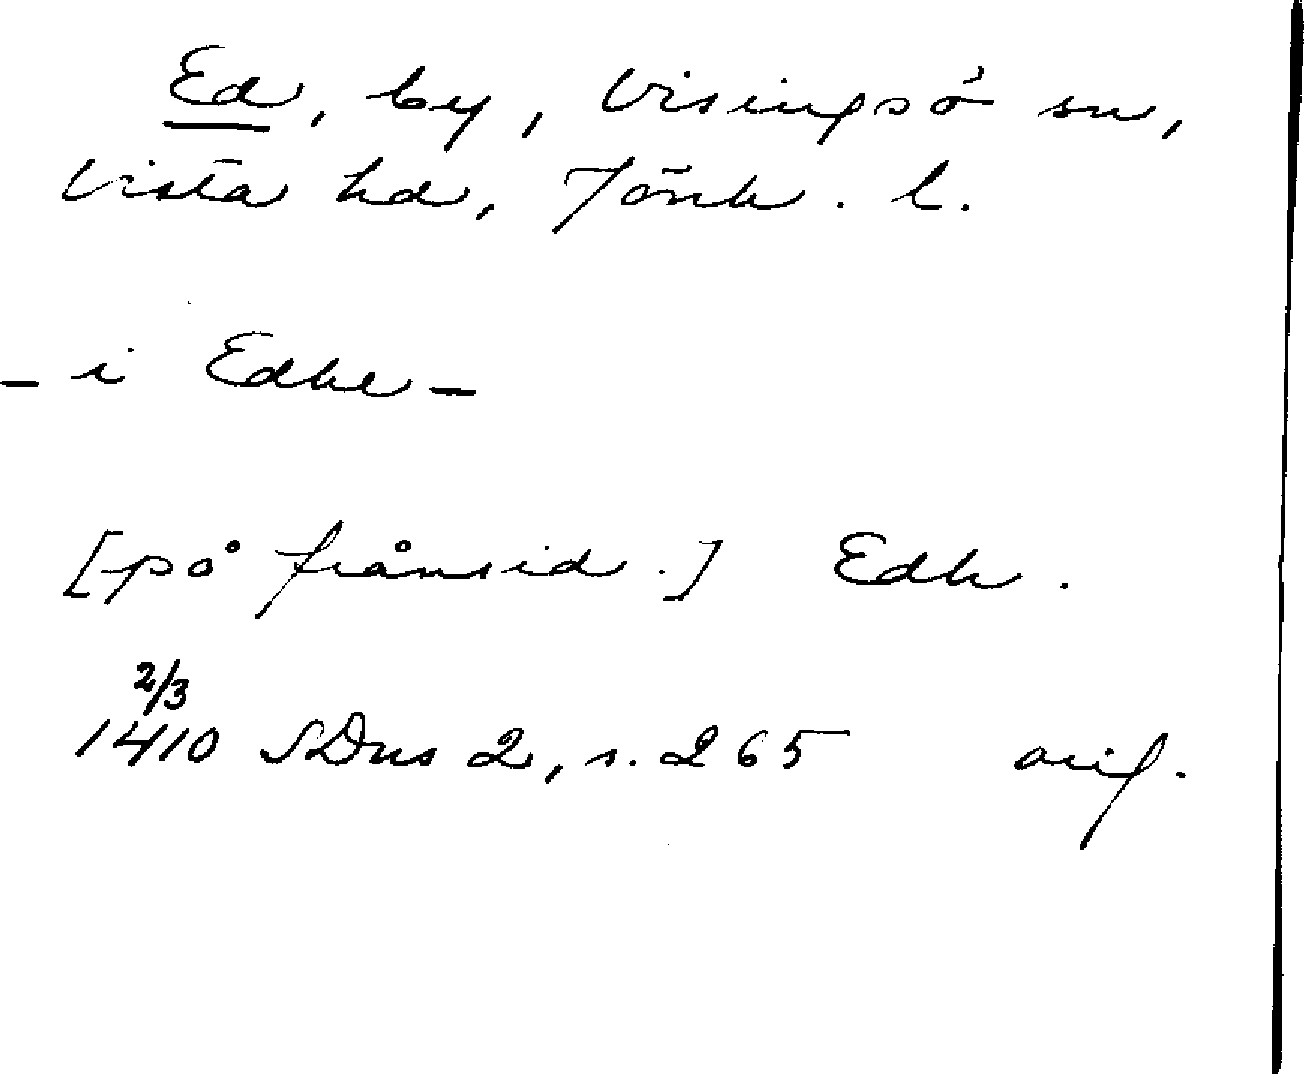 Ed, by, Visingsö sn,
Vista hd, Jönk. l.
- i Edhe -
[på frånsid.] Edh.
2/3
1410 SDns 2, s. 265 orig.